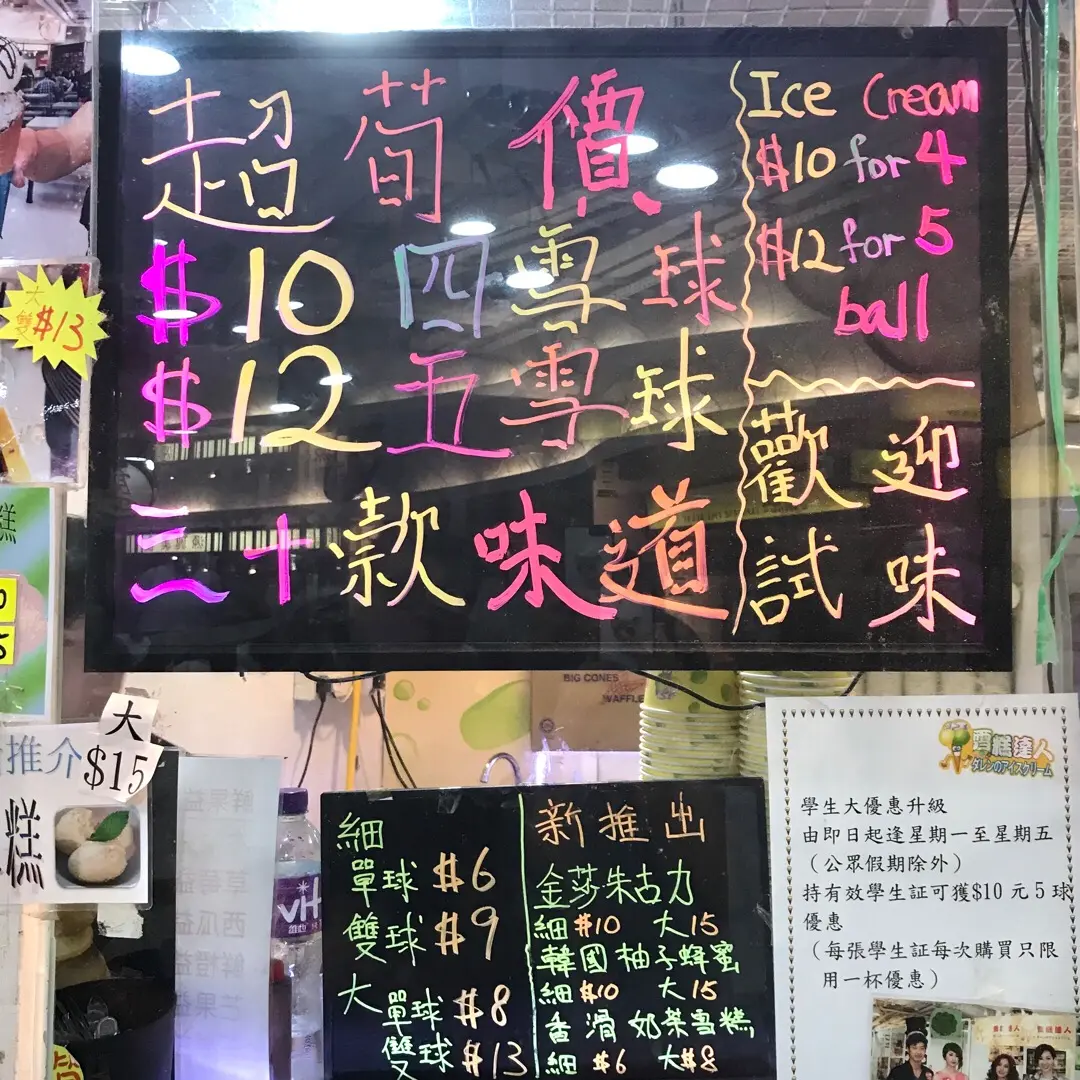 超荀價
$10四雪球
$12五雪球
三十款味道
Ice Cream
$10 for 4
$12 for 5
ball
歡迎
試味
大
雙$13
糕
推介
大
$15
糕
BIG CONES
WAFFLE
細
單球 $6
雙球 $9
大
單球 $8
雙球 $13
新推出
金莎朱古力
細$10 大15
韓國柚子蜂蜜
細$10 大15
香滑奶茶雪糕
細$6 大$8
雪糕達人
ダレンのアイスクリーム
學生大優惠升級
由即日起逢星期一至星期五
(公眾假期除外)
持有效學生証可獲$10 元 5 球
優惠
(每張學生証每次購買只限
用一杯優惠)